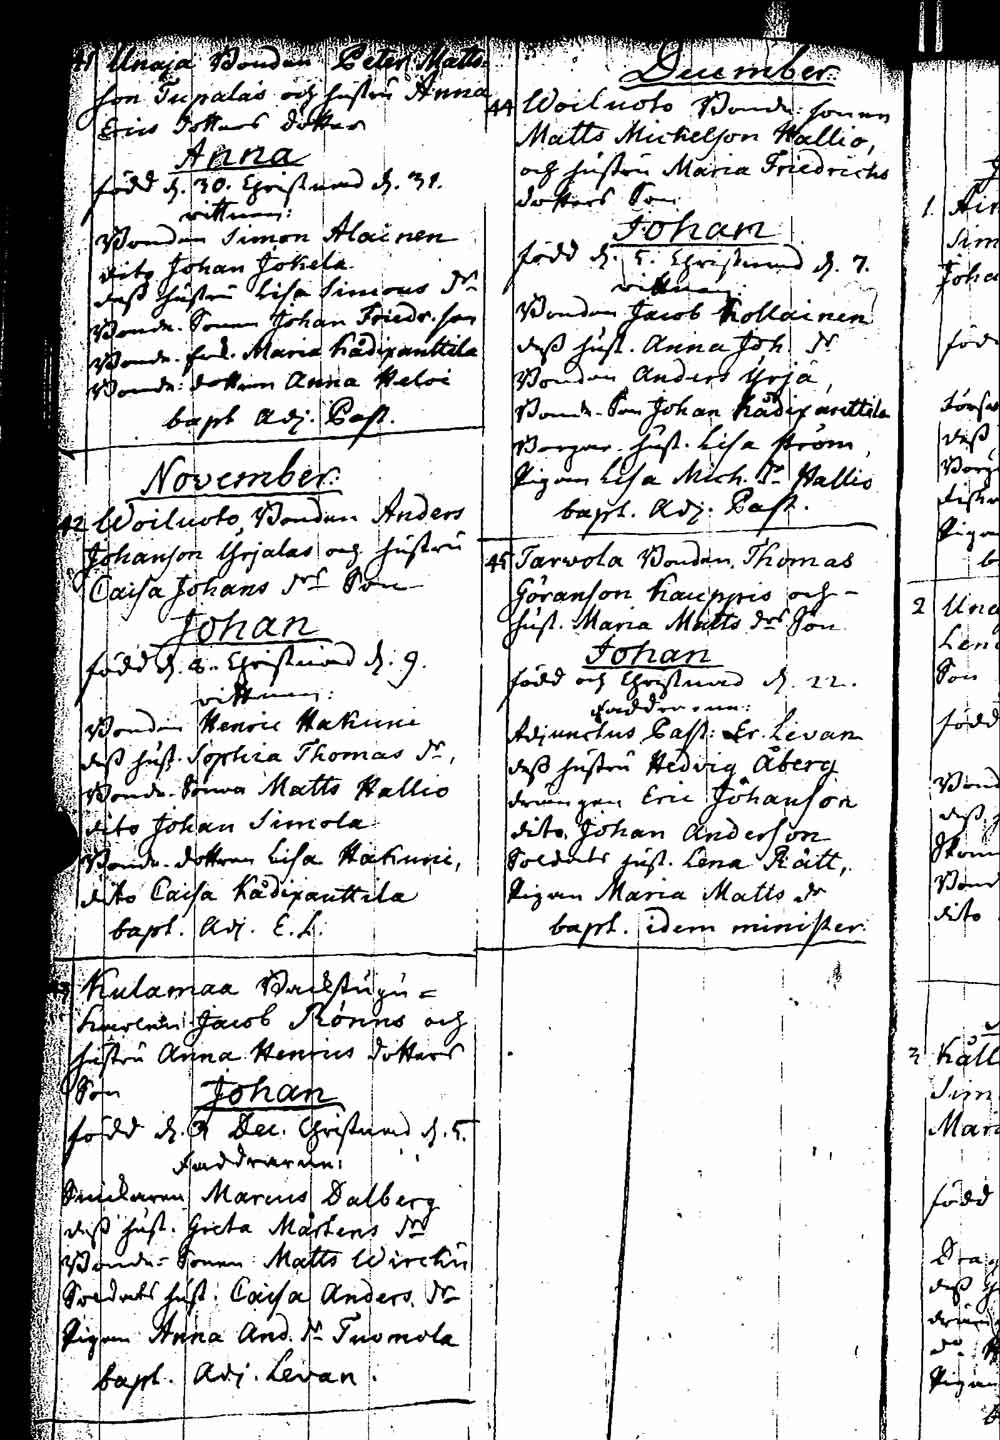 41 Unaja Bonden Peter Matts-
son Tupalas och hustru Anna
Erics Dotters dotter
Anna
född d. 30. Christnad d. 31.
vittnen:
Bonden Simon Alainen
dito Johan Jokela
dess hustru Lisa Simons dr
Bonde-Sonen Johan Friedr.son
Bonde- Maria Kådixanttila
Bonde-dottren Anna Heloi
bapt. Adj. Past.
November.
42 Woiluoto, Bonden Anders
Johanson Yrjalas och hustru
Caisa Johans drs Son
Johan
född d. 8. Christnad d. 9.
vittnen:
Bonden Henric Hakuni
dess hust. Sophia Thomas dr,
Bonde-Sonen Matts Hallio
dito Johan Simola
Bonde-dottren Lisa Hakuni,
dito Caisa Kådixanttila
bapt. Adj. E.L.
43 Kulamaa Backstugu=
Jacob Rönns och
hustru Anna Henrics dotters
Son Johan
född d. 3 Dec. Christnad d. 5.
Faddrarne:
Snickaren Marcus Dalberg
dess hust. Greta Mårtens dr
Bonde-Sonen Matts Wirckû
Soldats hust. Caisa Anders dr
Pigan Anna And. dr Tuomola
bapt. Adj. Levan.
December.
44 Woiluoto Bonde-sonen
Matts Mickelson Hallio,
och hustru Maria Friedrichs
dotters Son
Johan
född d. 5. Christnad d. 7.
vittnen:
Bonden Jacob Kollainen
dess hust. Anna Joh. dr
Bonden Anders Yrjä,
Bonde-Son Johan Kådixanttila
Borgar. hust. Lisa Ström,
Pigan Lisa Mich. dr Hallio
bapt. Adj. Past.
45 Tarvola Bonden Thomas
Göranson Kauppis och
hust. Maria Matts drs Son
Johan
född och Christnad d. 22.
Faddrarne:
Adjunctus Past: Er. Levan
dess hustru Hedvig Åberg
drängen Eric Johanson
dito. Johan Anderson
Soldats hust. Lena Rått,
Pigan Maria Matts dr
bapt. idem minister.
1.
född
dess
2
Son
född
dess
dito
3
född
dess
Pigan